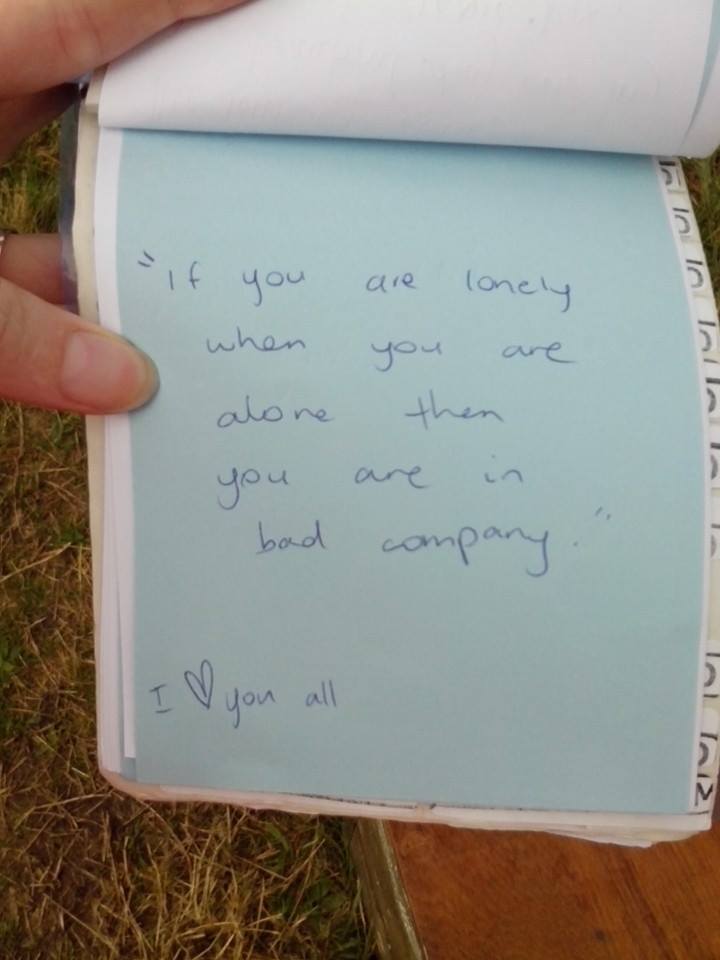 "If you are lonely
when you are
alone then
you are in
bad company."
I ♡ you all